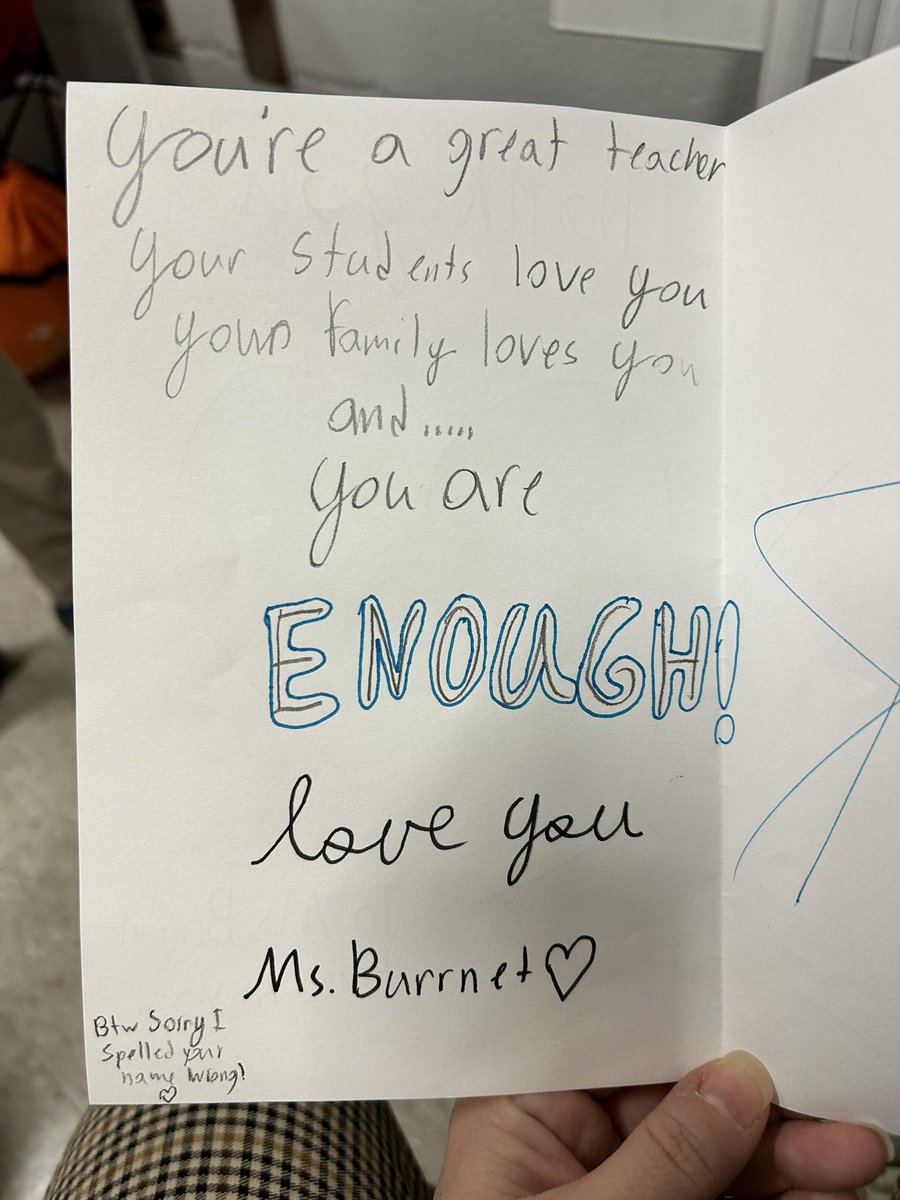 you're a great teacher
your students love you
your family loves you
and.....
you are
ENOUGH!
love you
Ms. Burrnet♡
Btw Sorry I
Spelled your
name wrong!
♡